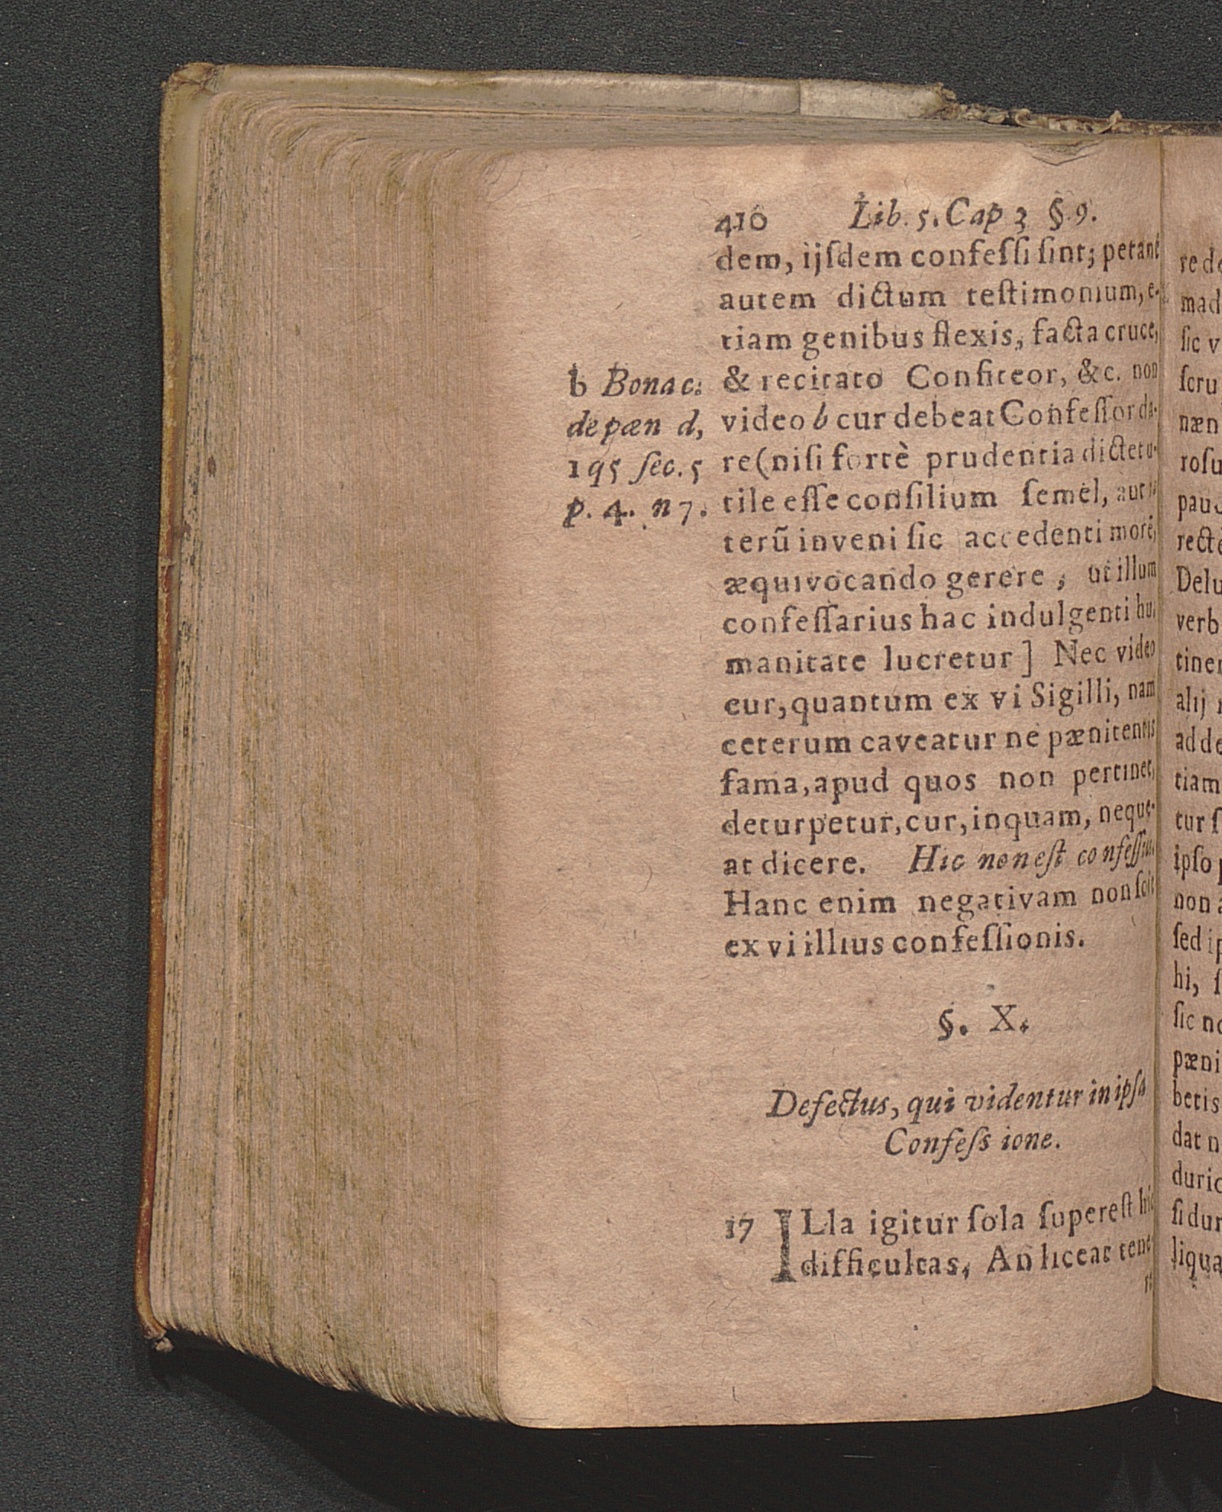 410 Lib. 5. Cap 3 §. 9.
dem, ijſdem confeſſi ſint; petant
autem dictum teſtimonium, e-
tiam genibus flexis, facta cruce,
& recitato Confiteor, &c. non
video b cur debeat Confeſſor da-
re (niſi fortè prudentia dictet u-
tile eſſe conſilium ſemel, aut
terũ inveni ſic accedenti mori,
æquivocando gerere, ut illum
confeſſarius hac indulgenti hu-
manitate lucretur] Nec video
cur, quantum ex vi Sigilli, nam
ceterum caveatur ne pænitentis
fama, apud quos non pertinet,
deturpetur, cur, inquam, neque-
at dicere. Hic non eſt confeſſus
Hanc enim negativam non ſcit
ex vi illius confeſſionis.
b Bonac:
de pæn d,
1q5 ſec. 5
p. 4. n 7.
§. X.
Defectus, qui videntur in ipſa
Confeſs ione.
17 ILla igitur ſola ſupereſt hic
difficultas, An liceat
re
mad
ſic v
ſcru
næn
roſu
pauc
recte
Delu
verb
tiner
alij
ad de
tiam
tur
ipſo
non
ſed
hi,
ſic
pæni
betis
dat n
duric
ſi dur
liqua